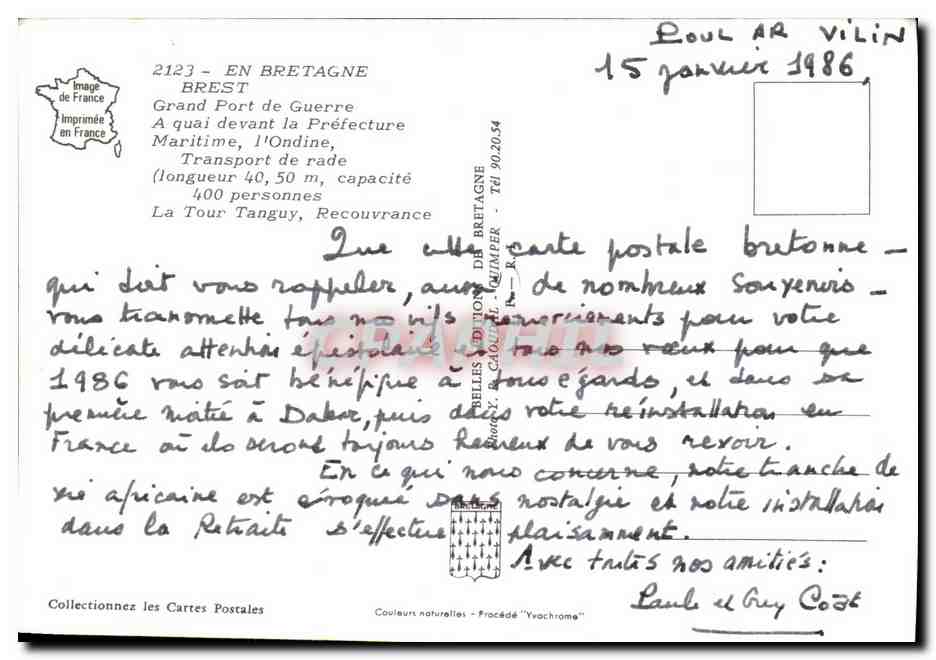 POUL AR VILIN
15 janvier 1986,
Image
de France
Imprimée
en France
2123 - EN BRETAGNE
BREST
Grand Port de Guerre
A quai devant la Préfecture
Maritime, l'Ondine,
Transport de rade
(longueur 40, 50 m, capacité
400 personnes
La Tour Tanguy, Recouvrance
BELLES EDITIONS DE BRETAGNE
Photo Y. R. CAOUDAL - QUIMPER - Tél 90.20.54
Que cette carte postale bretonne -
qui doit vous rappeler, aussi, de nombreux souvenirs -
vous transmette tous nos vifs remerciements pour votre
délicate attention épistolaire et tous nos vœux pour que
1986 vous soit bénéfique à tous égards, et dans sa
première moitié à Dakar, puis dans votre réinstallation en
France où ils seront toujours heureux de vous revoir.
En ce qui nous concerne, notre tranche de
vie africaine est évoquée sans nostalgie et notre installation
dans la Retraite s'effectue plaisamment.
Avec toutes nos amitiés:
Paule et Guy Coat
BRETAGNE
Collectionnez les Cartes Postales
Couleurs naturelles - Procédé "Yvachrome"